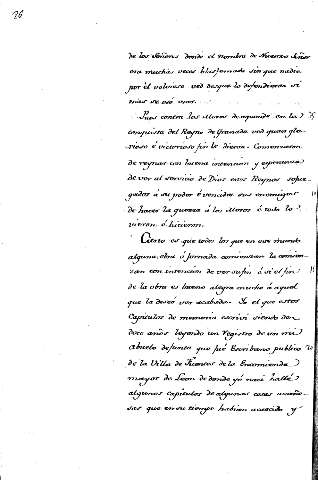 26
de los señores donde el nombre de Nuestro Señor
era muchas veces blasfemado sin que nadie
por él volviese ved des que lo defendieron si
mas se osó usar.
Pues contra los Moros de aquende en la
conquista del Reyno de Granada ved quan glo-
rioso é victorioso fin le dieron. Comenzaron
de reynar con buena intencion y esperanza
de ver al servicio de Dios estos Reynos sojuz-
gados á su poder é vencidos sus enemigos
de hacer la guerra á los Moros é todo lo
hicieron.
Cierto es que todos los que en este mundo
alguna obra ó jornada comienzan la comien-
zan con intencion de ver su fin é si el fin
de la obra es bueno alegra mucho á aquel
que la deseó ver acabada. Yo el que estos
Capitulos de memoria escriví siendo de
doce años leyendo un registro de un mi
abuelo defunto que fué Escribano publico
de la Villa de Fuentes de la Encomienda
mayor de Leon de donde yo nací hallé
algunos capitulos de algunas cosas hazaño-
sas que en su tiempo habian acaecido y